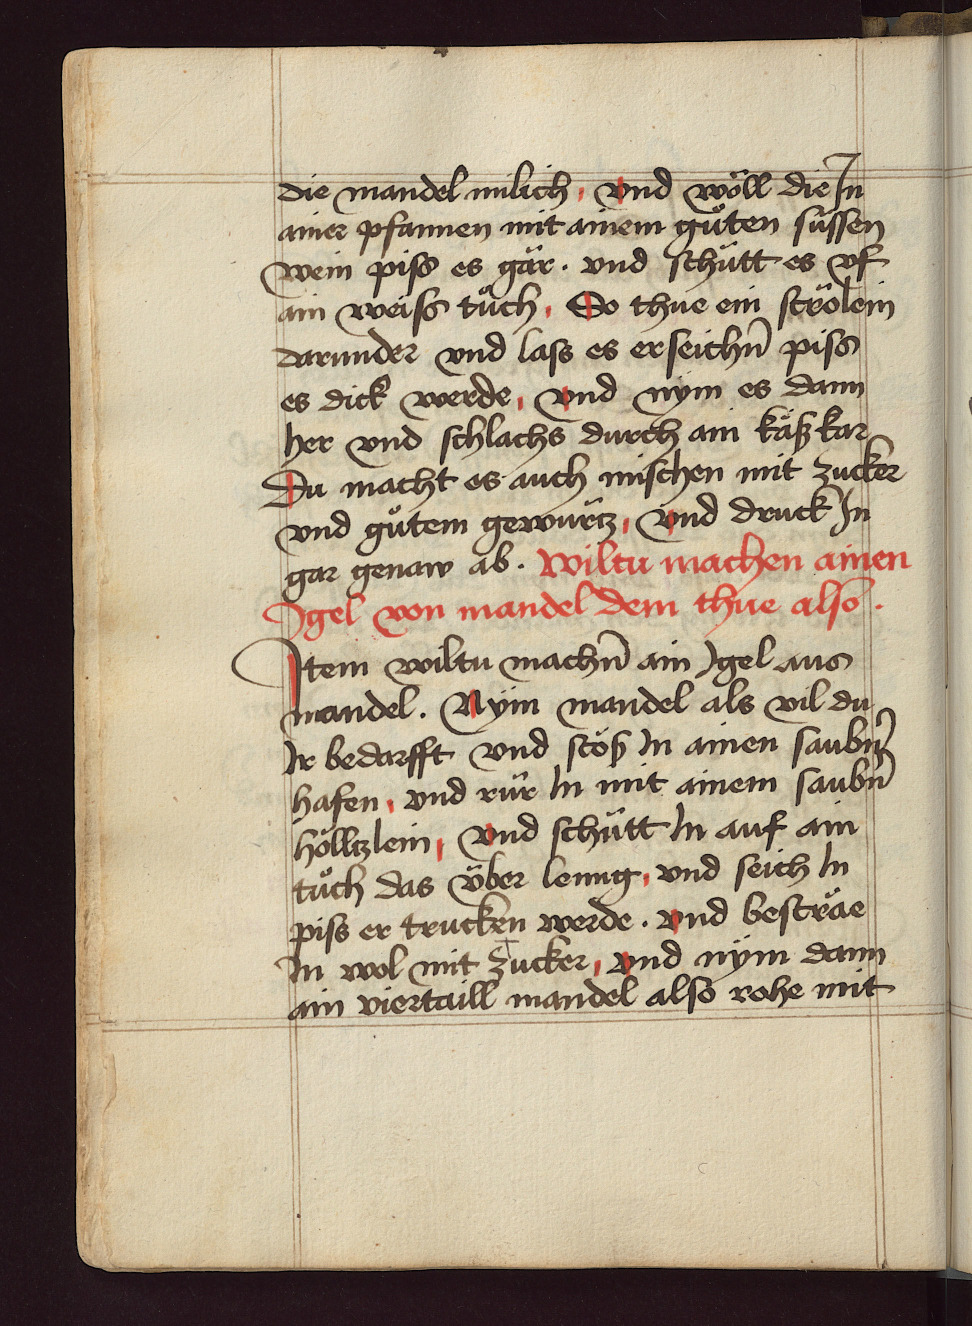 die mandel milich, vnd wöll die In
ainer pfannen mit ainem gůten süssen
wein piss es gär. vnd schütt es vf
ain weiss tůch, So thue ein strölein
darunder vnd lass es erseichn̄ piss
es dick werde, vnd nym es dann
her vnd schlachs durch ain käß kar
Du macht es auch mischen mit zucker
vnd gůtem gewürtz, vnd druck In
gar genaw ab. Wiltu machen ainen
Igel von mandel dem thue also.
Item wiltu machn̄ ain Igel aus
mandel. Nym mandel als vil du
Ir bedarfft vnd stöß In ainen saubn̄
hafen, vnd rür In mit ainem saubn̄
höltzlein, vnd schütt In auf ain
tůch das über leng, vnd seich In
piss er trucken werde. vnd besträe
In wol mit zucker, vnd nym dann
ain viertaill mandel also rohe mit